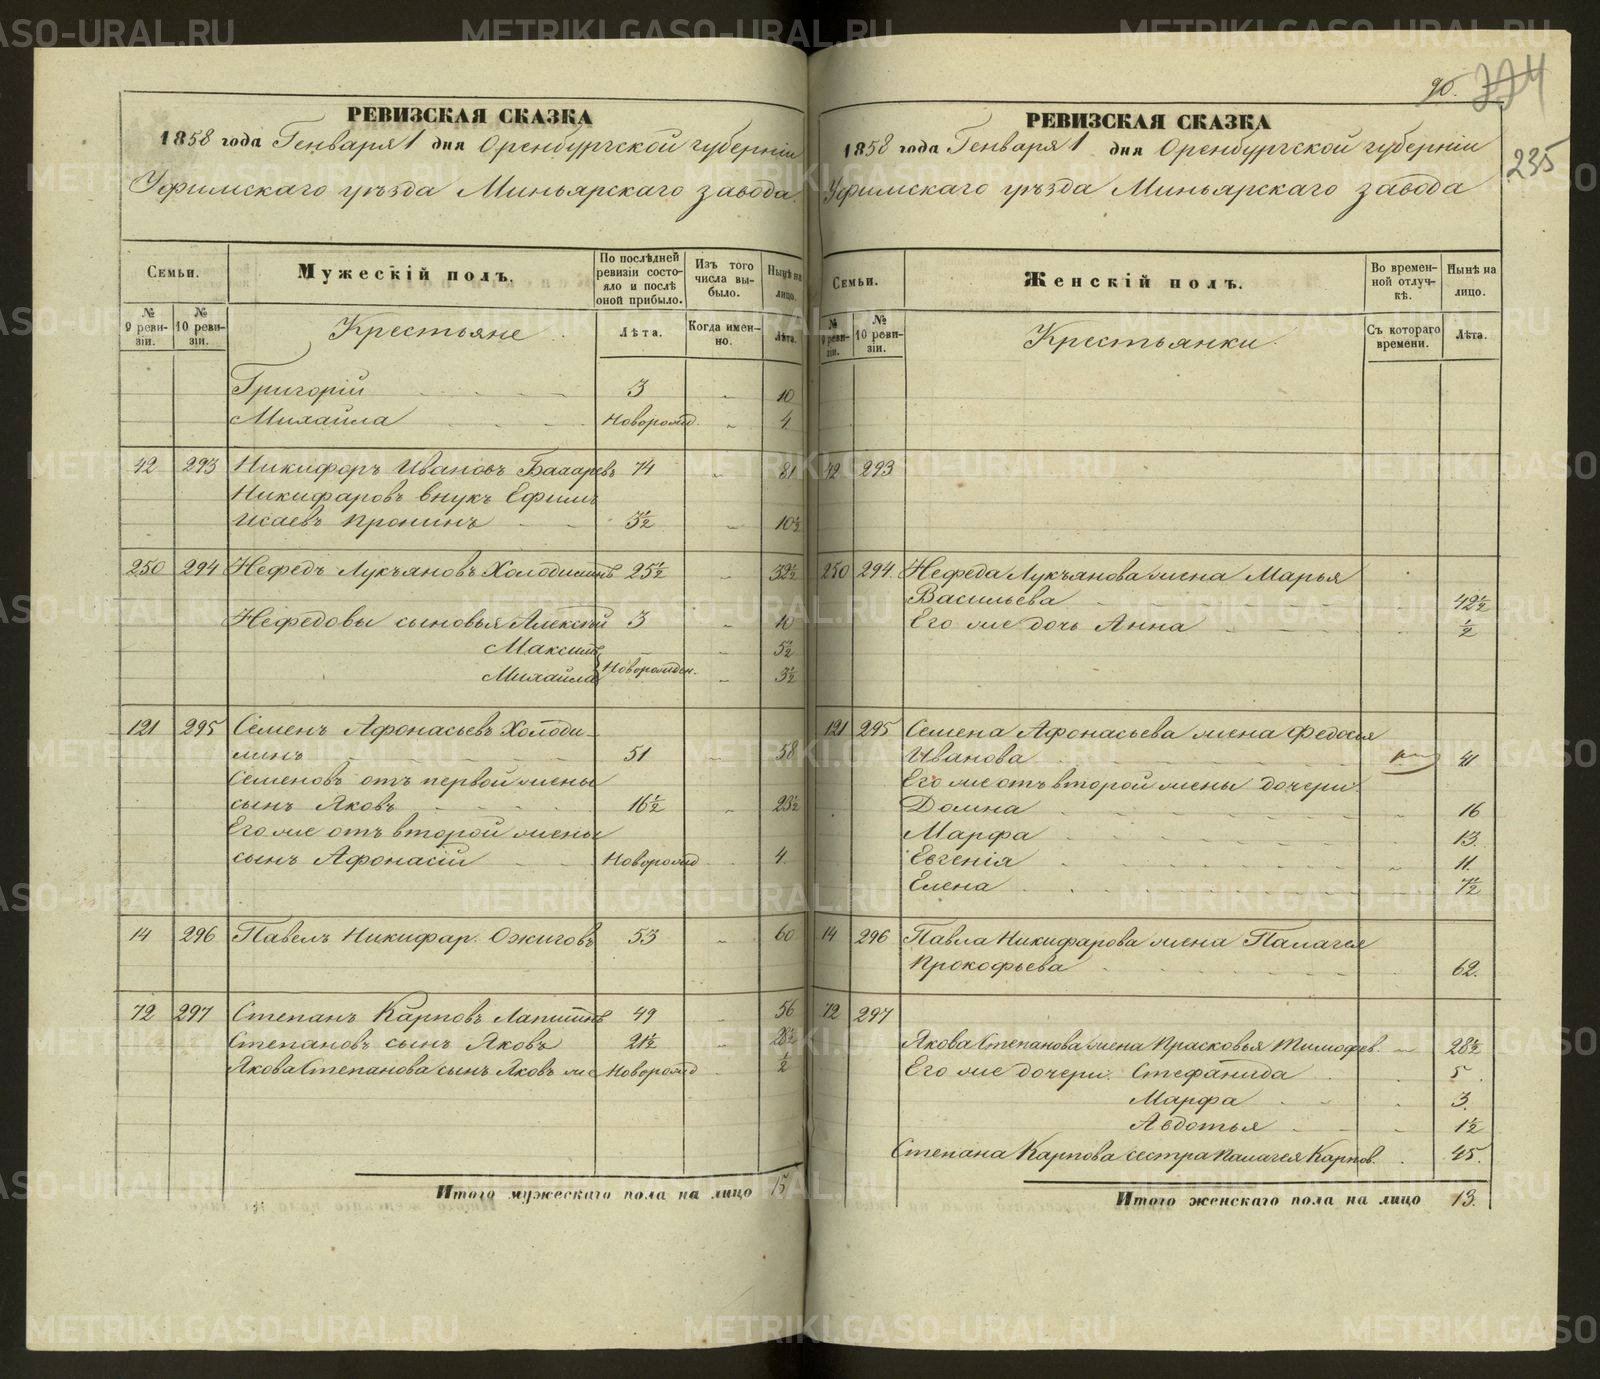 РЕВИЗСКАЯ СКАЗКА
1858 года Генваря 1 дня Оренбургской губерніи
Уфимскаго уѣзда Миньярскаго завода.
Семьи.
Мужескій полъ.
По послѣдней ревизіи состояло и послѣ оной прибыло.
Изъ того числа выбыло.
Нынѣ на лицо.
№ 9 ревизіи.
№ 10 ревизіи.
Крестьяне
Лѣта.
Когда именно.
Лѣта.
Григорій 3 10
Михайла Новорожд 4.
12 293 Никифоръ Ивановъ 74 81
Никифаровъ внукъ Ефимъ
Исаевъ Пронинъ 3½ 10½
250 294 Нефедъ Лукъяновъ Холодилинъ 25½ 32½
Нефедовы сыновья Алексѣй 3 10
Максимъ 5½
Михайла Новорожден. 3½
121 295 Семенъ Афонасьевъ Холоди-
линъ 51 58
Семеновъ отъ первой жены
сынъ Яковъ 16½ 23½
Его же отъ второй жены
сынъ Афонасій Новорожд 4.
14 296 Павелъ Никифар. Ожиговъ 53 60
72 297 Степанъ Карповъ Лапшинъ 49 56
Степановъ сынъ Яковъ 21½ 28½
Якова Степанова сынъ Яковъ же Новорожд ½
Итого мужескаго пола на лицо 15
90. 224
235
РЕВИЗСКАЯ СКАЗКА
1858 года Генваря 1 дня Оренбургской губерніи
Уфимскаго уѣзда Миньярскаго завода
Семьи.
Женскій полъ.
Во временной отлучкѣ.
Нынѣ на лицо.
№ 9 ревизіи.
№ 10 ревизіи.
Крестьянки.
Съ котораго времени.
Лѣта.
12 293
250 294. Нефеда Лукъянова жена Марья
Васильева 42½
Его же дочь Анна ½
121 295 Семена Афонасьева жена Федосья
Иванова 41
Его же отъ второй жены дочери.
Домна 16
Марфа 13.
Евгенія 11.
Елена 7½
14 296 Павла Никифарова жена Палагея
Прокофьева 62.
72 297
Якова Степанова жена Прасковья Тимофев. 28½
Его же дочери. Стефанида 5
Марфа 3.
Авдотья 1½
Степана Карпова сестра Палагея Карпов. 45.
Итого женскаго пола на лицо 13.
METRIKI.GASO-URAL.RU